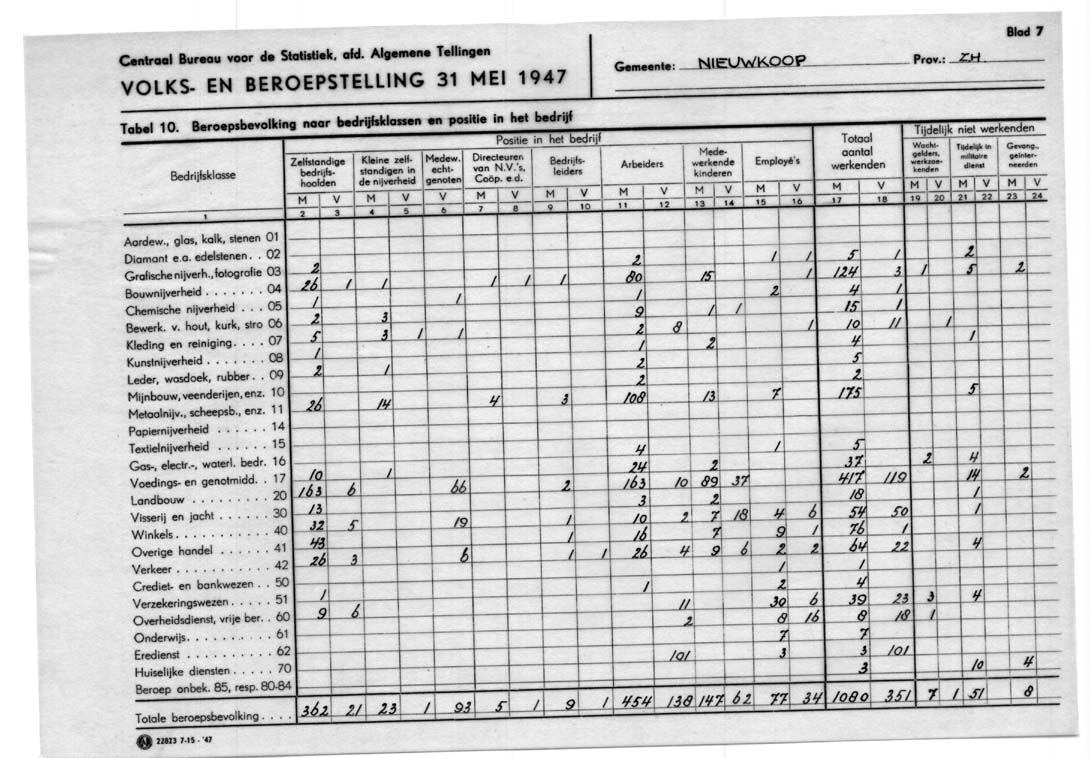 Blad 7
Centraal Bureau voor de Statistiek, afd. Algemene Tellingen
VOLKS- EN BEROEPSTELLING 31 MEI 1947
Gemeente: NIEUWKOOP Prov.: ZH
Tabel 10. Beroepsbevolking naar bedrijfsklassen en positie in het bedrijf
Bedrijfsklasse
Positie in het bedrijf
Zelfstandige bedrijfs-hoofden
Kleine zelf-standigen in de nijverheid
Medew. echt-genoten
Directeuren van N.V.'s, Coöp. e.d.
Bedrijfs-leiders
Arbeiders
Mede-werkende kinderen
Employé's
Totaal aantal werkenden
Tijdelijk niet werkenden
Wacht-gelders, werkzoe-kenden
Tijdelijk in militaire dienst
Gevang., geïnter-neerden
M V M V V M V M V M V M V M V M V M V M V M V
1 2 3 4 5 6 7 8 9 10 11 12 13 14 15 16 17 18 19 20 21 22 23 24
Aardew., glas, kalk, stenen 01
Diamant e.a. edelstenen . . 02
Grafische nijverh., fotografie 03 2 2 1 1 5 1 2
Bouwnijverheid . . . . . . . 04 26 1 1 1 1 1 80 15 1 124 3 1 5 2
Chemische nijverheid . . . 05 1 1 1 2 4 1
Bewerk. v. hout, kurk, stro 06 2 3 9 1 1 15 1
Kleding en reiniging. . . . 07 5 3 1 1 2 8 1 10 11 1 1
Kunstnijverheid . . . . . . . 08 1 1 2 4
Leder, wasdoek, rubber . . 09 2 1 2 5
Mijnbouw, veenderijen, enz. 10 2 2
Metaalnijv., scheepsb., enz. 11 26 14 4 3 108 13 7 175 5
Papiernijverheid . . . . . . 14
Textielnijverheid . . . . . . 15
Gas-, electr.-, waterl. bedr. 16 4 1 5
Voedings- en genotmidd. . 17 10 1 24 2 37 2 4
Landbouw . . . . . . . . . 20 163 6 66 2 163 10 89 37 417 119 14 2
Visserij en jacht . . . . . . 30 13 3 2 18 1
Winkels . . . . . . . . . . . 40 32 5 19 1 10 2 7 18 4 6 54 50 1
Overige handel . . . . . . 41 43 1 16 7 9 1 76 1
Verkeer . . . . . . . . . . . 42 26 3 6 1 1 26 4 9 6 2 2 64 22 4
Crediet- en bankwezen . . 50 1 1
Verzekeringswezen . . . . . 51 1 1 2 4
Overheidsdienst, vrije ber. . 60 9 6 11 30 6 39 23 3 4
Onderwijs. . . . . . . . . . 61 2 8 16 8 18 1
Eredienst . . . . . . . . . . 62 7 7
Huiselijke diensten . . . . . 70 101 3 3 101
Beroep onbek. 85, resp. 80-84 3 10 4
Totale beroepsbevolking . . . . 362 21 23 1 93 5 1 9 1 454 138 147 62 77 34 1080 351 7 1 51 8
22823 7-15 - '47